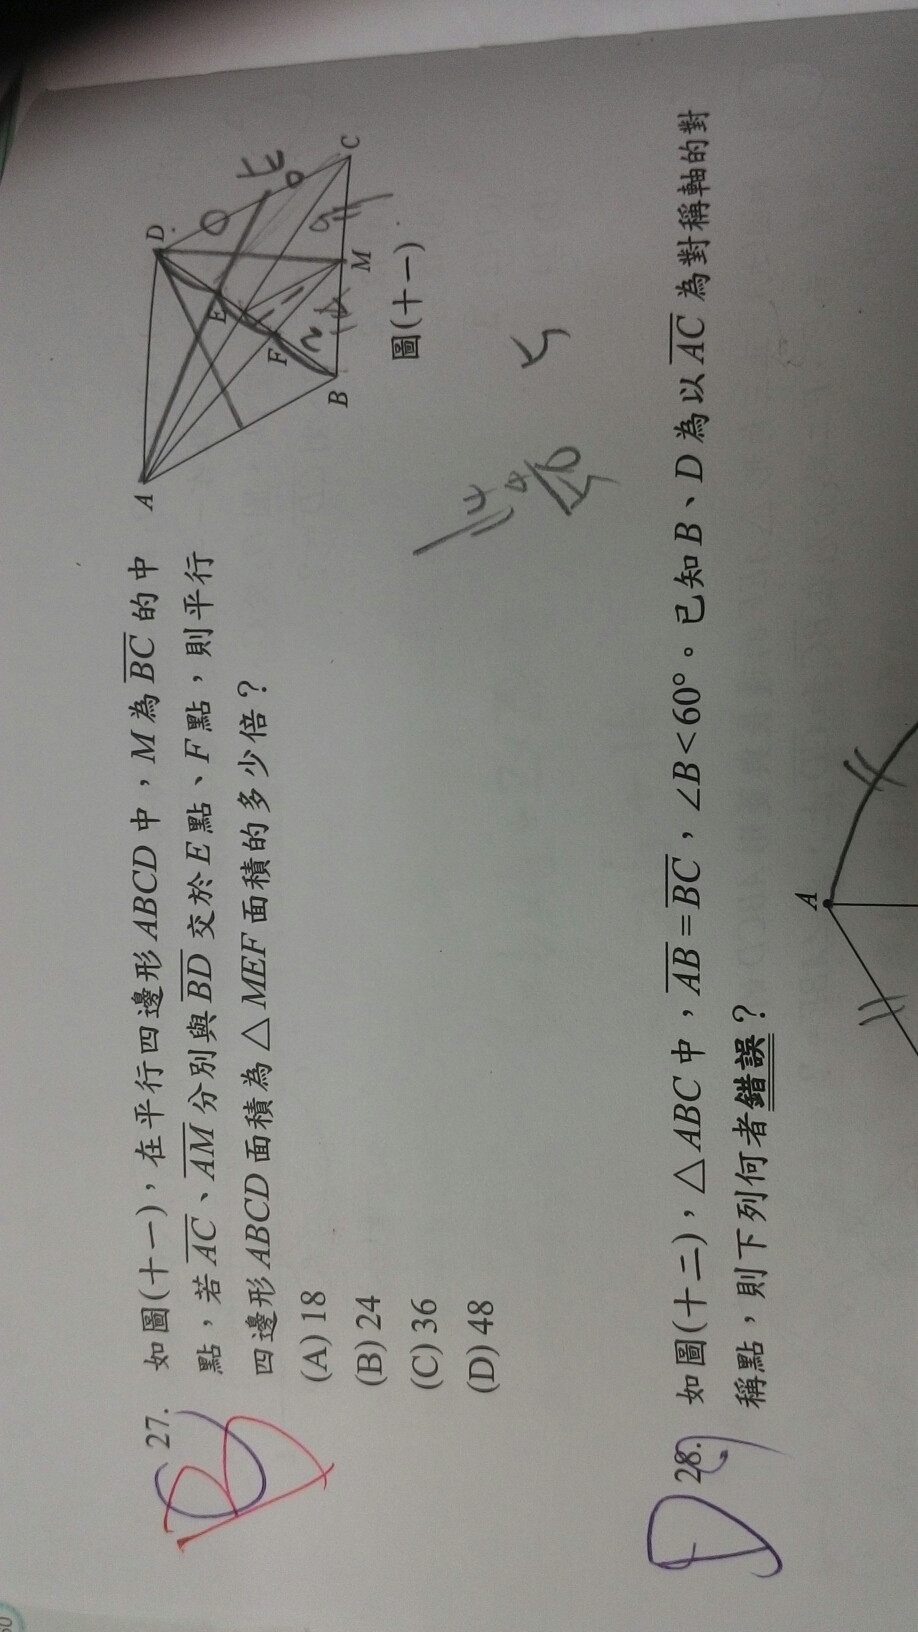 27. 如圖(十一),在平行四邊形ABCD中,M為BC的中
點,若AC、AM分別與BD交於E點、F點,則平行
四邊形ABCD面積為△MEF面積的多少倍?
(A)18
(B)24
(C)36
(D)48
B
A
D
E
F
B
M
C
圖(十一)
D
28. 如圖(十二),△ABC中,AB=BC,∠B<60°。已知B、D為以AC為對稱軸的對
稱點,則下列何者錯誤?
A